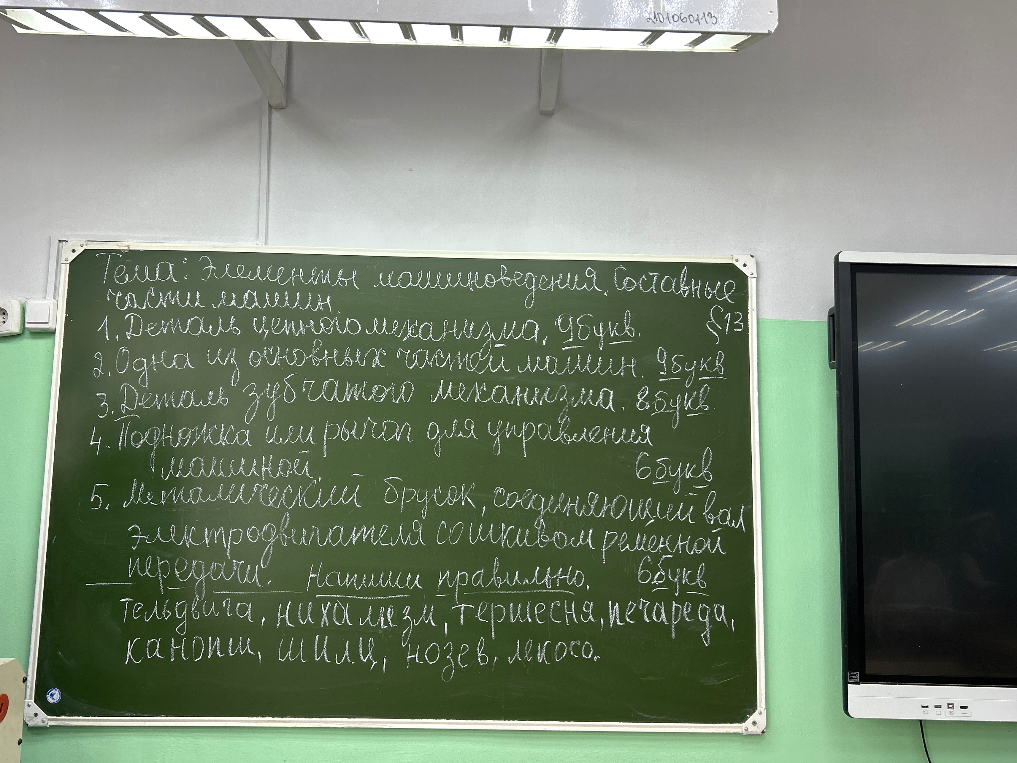 Тема: Элементы машиноведения. Составные
части машин §13
1. Деталь цепного механизма. 9букв.
2. Одна из основных частей машин. 9букв
3. Деталь зубчатого механизма. 8букв.
4. Подножка или рычаг для управления
машиной. 6букв
5. Металический брусок, соединяющий вал
электродвигателя со шкивом ременной
передачи. Напиши правильно. 6букв
тельдвига, нихамезм, тершесня, печареда,
канопш, шилц, нозев, лекосо.